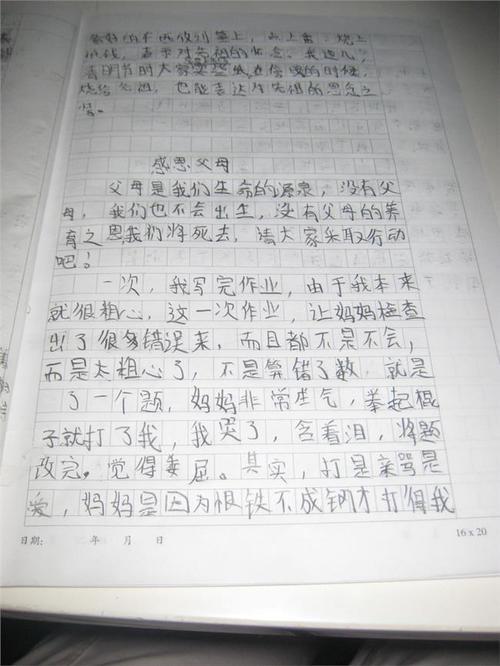 上
表示对先祖的怀念。
清明节时大家
烧给先祖，也能表达对先祖的思念之
情。
感恩父母
父母是我们生命的源泉，没有父
母，我们也不会出生，没有父母的养
育之恩我们将死去，请大家采取行动
吧！
一次，我写完作业，由于我本来
就很粗心，这一次作业，让妈妈检查
出了很多错误来，而且都不是不会，
而是太粗心了，不是算错了数，就是
了一个题，妈妈非常生气，举起棍
子就打了我，我哭了，含着泪，将题
改完。觉得委屈。其实，打是亲骂是
爱，妈妈是因为恨铁不成钢才打得我
日期： 年 月 日
16×20